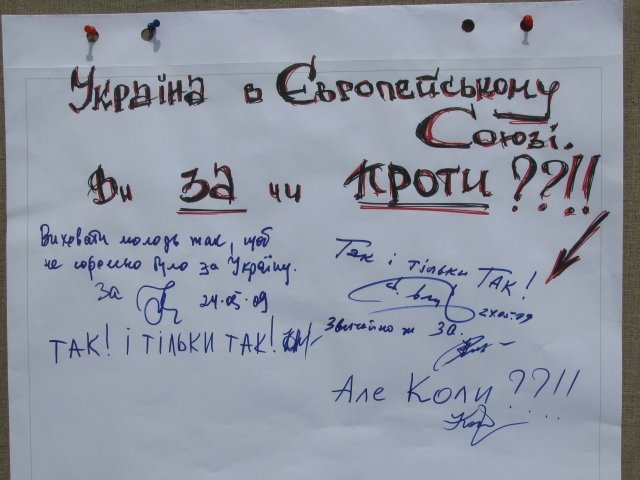 Україна в Європейському
Союзі.
Ви за чи проти ??!!
Виховати молодь так, щоб
не соромно було за Україну.
За 24.05.09
ТАК! і тільки ТАК!
Так і тільки ТАК!
24.05.09
Звичайно ж За.
Але Коли ??!!